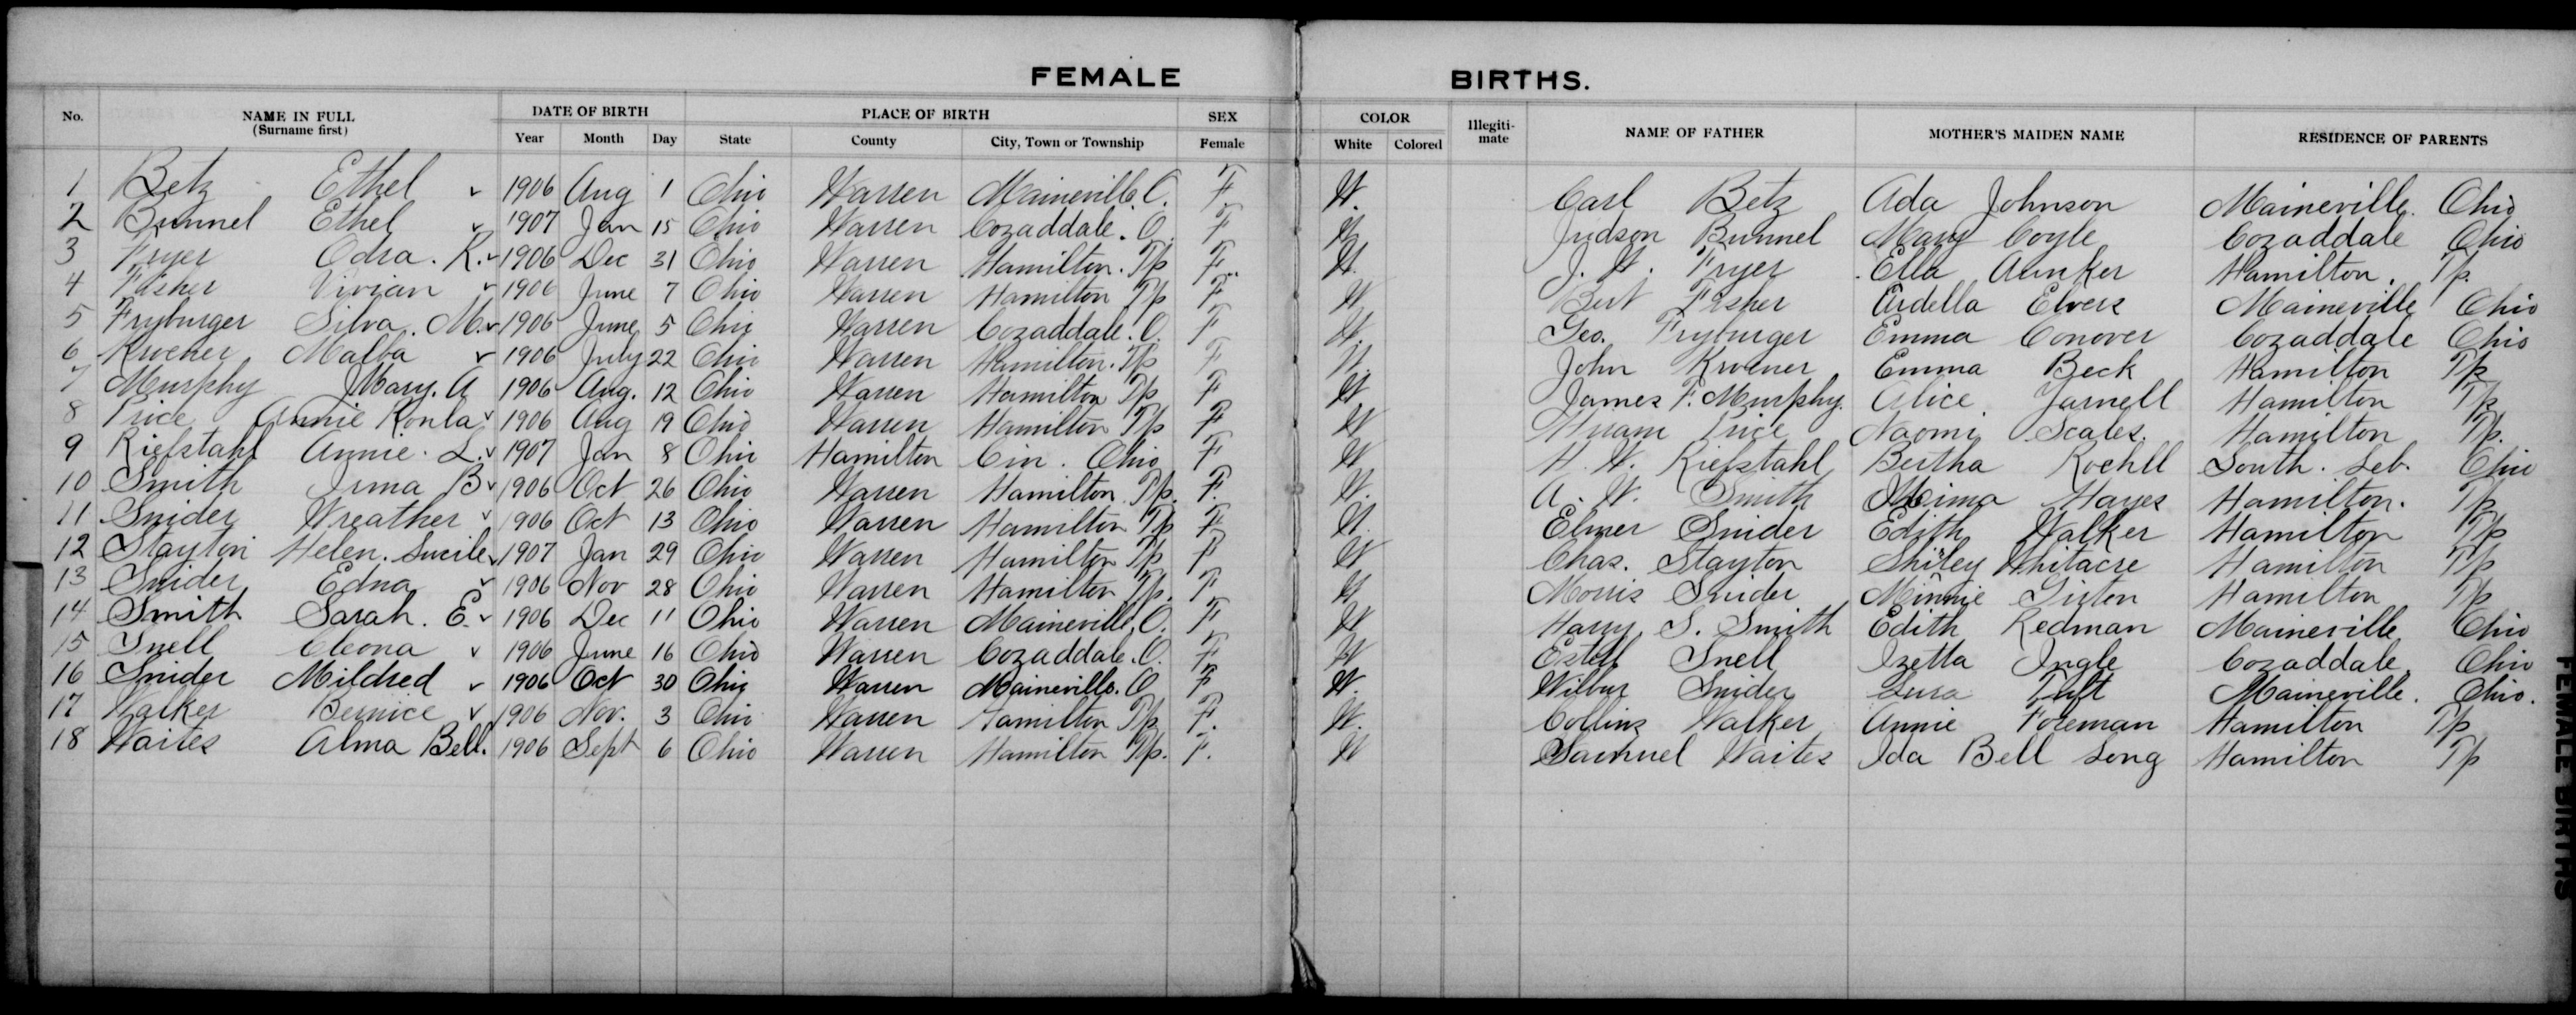 FEMALE BIRTHS.
No. NAME IN FULL (Surname first) DATE OF BIRTH Year Month Day PLACE OF BIRTH State County City, Town or Township SEX Female COLOR White Colored Illegiti-mate NAME OF FATHER MOTHER'S MAIDEN NAME RESIDENCE OF PARENTS
1 Betz Ethel 1906 Aug 1 Ohio Warren Maineville. O. F W. Carl Betz Ada Johnson Maineville. Ohio
2 Bunnel Ethel 1907 Jan 15 Ohio Warren Cozaddale. O. F W Judson Bunnel Mary Coyle Cozaddale Ohio
3 Fryer Odra. R. 1906 Dec 31 Ohio Warren Hamilton. Tp F W. J. W. Fryer Ella Hamilton. Tp.
4 Fisher Vivian 1906 June 7 Ohio Warren Hamilton Tp F W Bert Fisher Ardella Elvers Maineville Ohio
5 Fryburger Silva. M. 1906 June 5 Ohio Warren Cozaddale. O. F W. Geo. Fryburger Emma Conover Cozaddale Ohio
6 Kroener Malba 1906 July 22 Ohio Warren Hamilton. Tp F W. John Kroener Emma Beck Hamilton Tp
7 Murphy Mary. A 1906 Aug. 12 Ohio Warren Hamilton Tp F W James F. Murphy. Alice Jarnell Hamilton Tp
8 Price Annie 1906 Aug 19 Ohio Warren Hamilton Tp F W Hiram Price Naomi Scales. Hamilton Tp.
9 Riefstahl Annie. L. 1907 Jan 8 Ohio Hamilton Cin. Ohio F W H. W. Riefstahl Bertha Roehll South. Leb. Ohio
10 Smith Irma B 1906 Oct 26 Ohio Warren Hamilton Tp. F. W. A. W. Smith Hayes Hamilton. Tp
11 Snider Wreather 1906 Oct 13 Ohio Warren Hamilton Tp F W. Elmer Snider Edith Walker Hamilton Tp
12 Stayton Helen. Lucile 1907 Jan 29 Ohio Warren Hamilton Tp F W Chas. Stayton Shirley Whitacre Hamilton Tp
13 Snider Edna 1906 Nov 28 Ohio Warren Hamilton Tp. F W Morris Snider Minnie Girton Hamilton Tp
14 Smith Sarah. E. 1906 Dec 11 Ohio Warren Maineville, O. F W Harry S. Smith Edith Redman Maineville Ohio
15 Snell Cleona 1906 June 16 Ohio Warren Cozaddale. O. F W Estell Snell Izetta Ingle Cozaddale Ohio
16 Snider Mildred 1906 Oct 30 Ohio Warren Maineville. O. F W. Wilbur Snider Lura Tuft Maineville. Ohio.
17 Walker Bernice 1906 Nov. 3 Ohio Warren Hamilton Tp F. W. Collins Walker Annie Foreman Hamilton Tp
18 Waites Alma Bell. 1906 Sept 6 Ohio Warren Hamilton Tp. F. W Samuel Waites Ida Bell Long Hamilton Tp
FEMALE BIRTHS